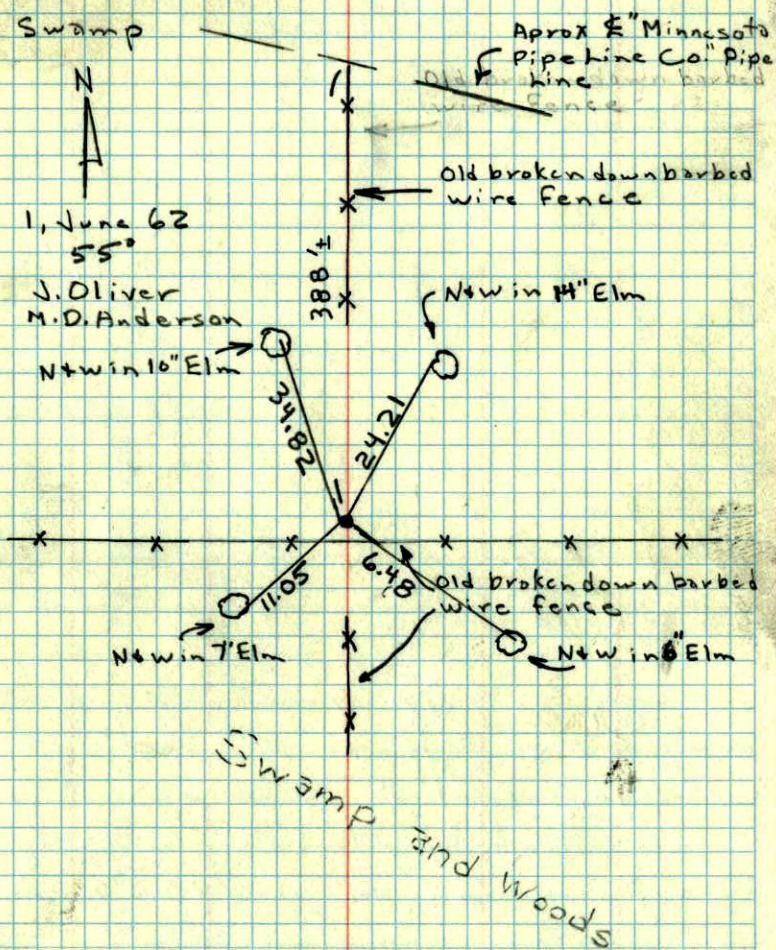 Swamp
Aprox ℄ "Minnesota
Pipe Line Co." Pipe
Line
N
Old broken down barbed
wire fence
Old broken down barbed
wire Fence
1, June 62
55°
J. Oliver
M.D. Anderson
388'±
N&W in 14" Elm
N&W in 10" Elm
34.82
24.21
11.05
6.48
Old broken down barbed
wire fence
N&W in 7" Elm
N&W in 6" Elm
Swamp and Woods